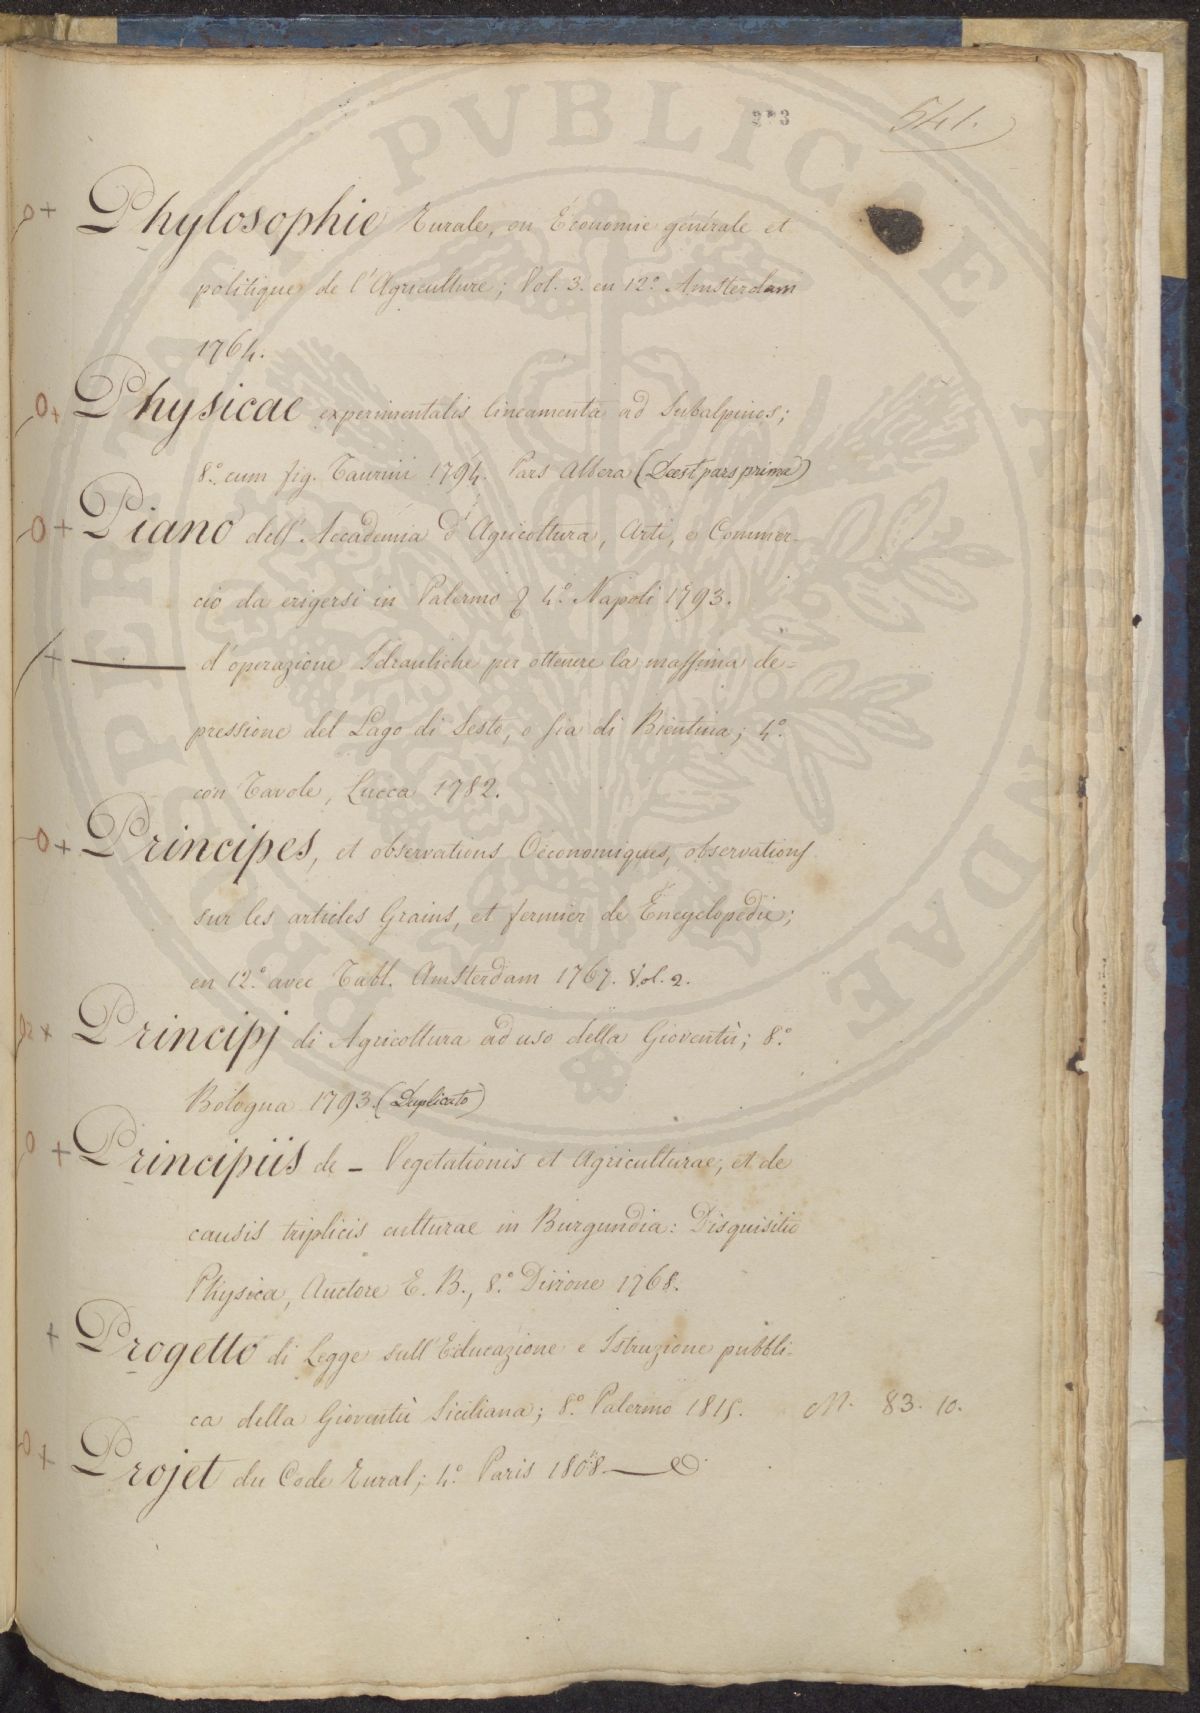 273
541.
Phylosophie Rurale, ou Économie générale et
politique de l'Agriculture; Vol. 3. en 12.° Amsterdam
1764.
Physicae experimentalis lineamenta ad Subalpinos;
8.° cum fig. Taurini 1794. Pars Altera (Deest pars prima)
Piano dell'Accademia d'Agricoltura, Arti, e Commer-
cio da erigersi in Palermo 4.° Napoli 1793.
——— d'operazione Idrauliche per ottenere la massima de=
pressione del Lago di Sesto, o sia di Bientina; 4.°
con Tavole, Lucca 1782.
Principes, et observations Oéconomiques, observations
sur les articles Grains, et fermier de Encyclopédie;
en 12.° avec Tabl. Amsterdam 1767. Vol. 2.
Principj di Agricoltura ad uso della Gioventù; 8.°
Bologna 1793. (Duplicato)
Principiis de _ Vegetationis et Agriculturae, et de
causis triplicis culturae in Burgundia: Disquisitio
Physica, Auctore E. B., 8.° Divione 1768.
Progetto di Legge sull'Educazione e Istruzione pubbli=
ca della Gioventù Siciliana; 8.° Palermo 1815. M. 83. 10.
Projet du Code Rural; 4.° Paris 1808.
PROSPERITATI PUBLICAE AUGENDAE